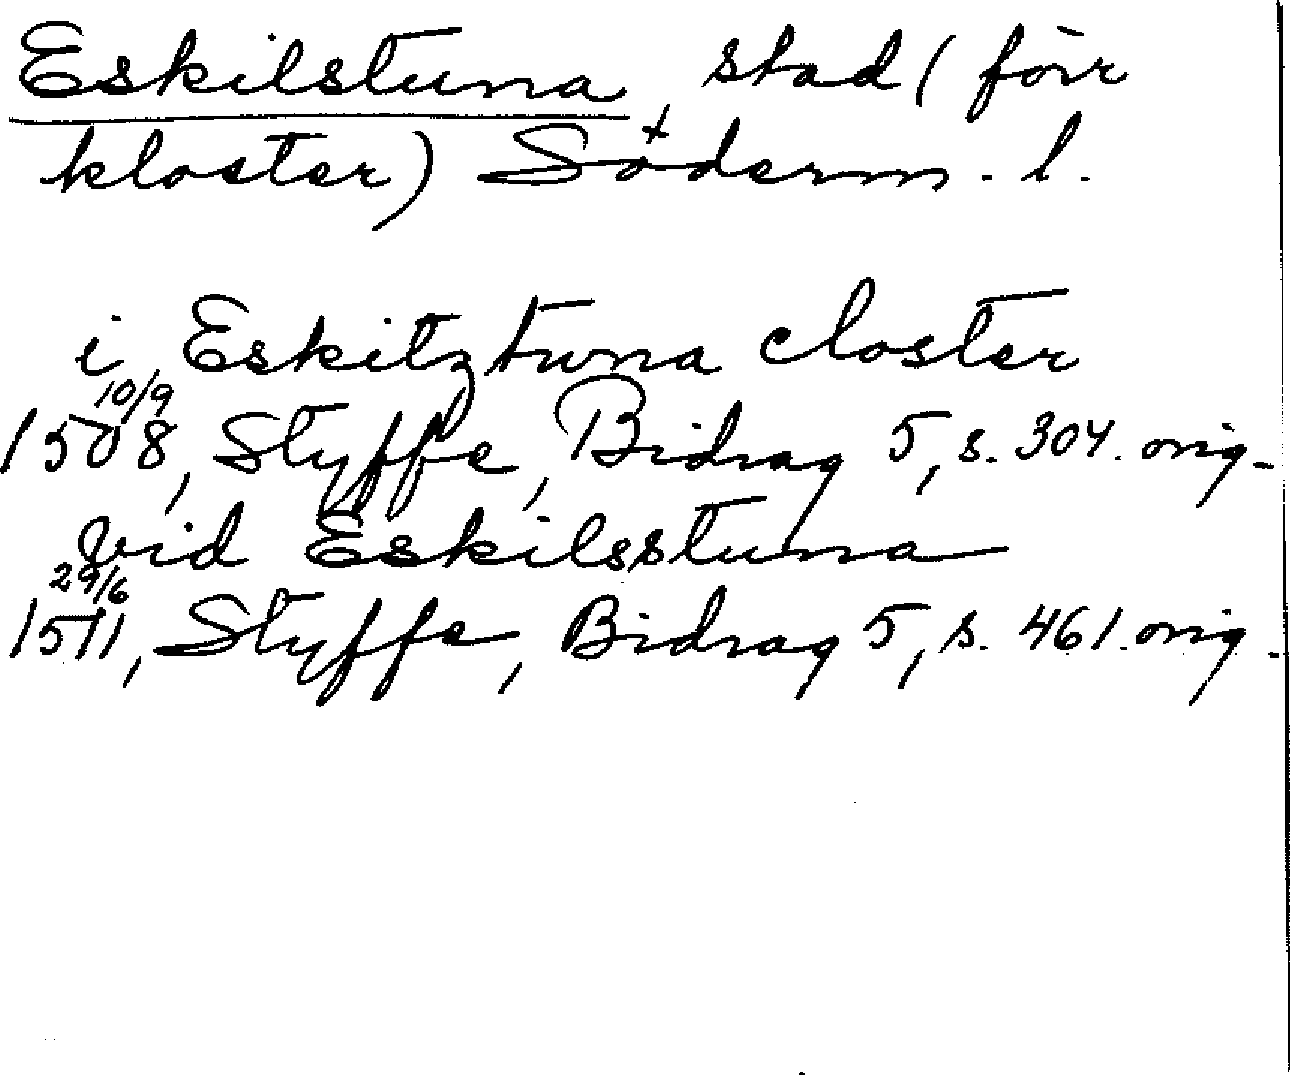 Eskilstuna, stad (förr
kloster) Söderm. l.
i Eskitztuna closter
10/9
1508, Styffe, Bidrag 5, s. 304. orig.
vid Eskilsstuna
29/6
1511, Styffe, Bidrag 5, s. 461. orig.